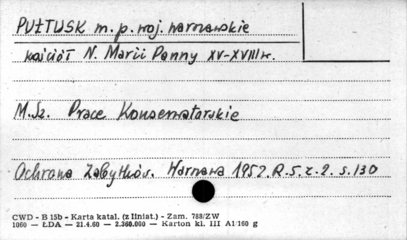 PUŁTUSK m. p. woj. warszawskie
kościół N. Marii Panny XV-XVIII w.
M.Sz. Prace Konserwatorskie
Ochrona Zabytków. Warszawa 1952. R.5. z.2. s.130
CWD - B 15b - Karta katal. (z liniat.) - Zam. 788/ZW
1060 — ŁDA — 21.4.60 — 2.360.000 — Karton kl. III A1/160 g